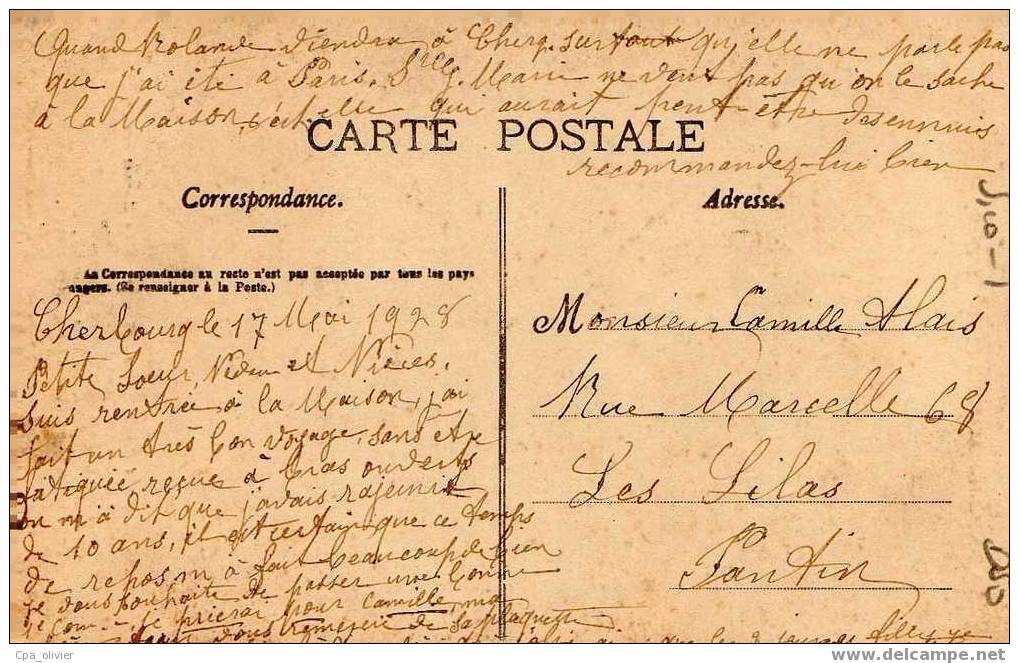 Quand Rolande viendra à Cherg. surtout qu'elle ne parle pas
que j'ai été à Paris. Marie ne veut pas qu'on le sache
à la Maison, qui aurait peut-être des ennuis
recommandez-lui bien
CARTE POSTALE
Correspondance.
Adresse.
La Correspondance au recto n'est pas acceptée par tous les pays
angers. (Se renseigner à la Poste.)
Cherbourg le 17 Mai 1928
Petite Soeur, Neveu et Nièces,
Suis rentrée à la Maison, j'ai
fait un très bon voyage, sans etre
fatiguée reçue à bras ouverts
on m'à dit que j'avais rajeunit
de 10 ans, il est certain que ce temps
de repos m'à fait beaucoup de bien
je vous souhaite de passer une bonne
je prierai pour Camille,
vous remercie de sa plaquette
Monsieur Camille Alais
Rue Marcelle 68
Les Lilas
Pantin
Cpa_olivier
www.delcampe.net